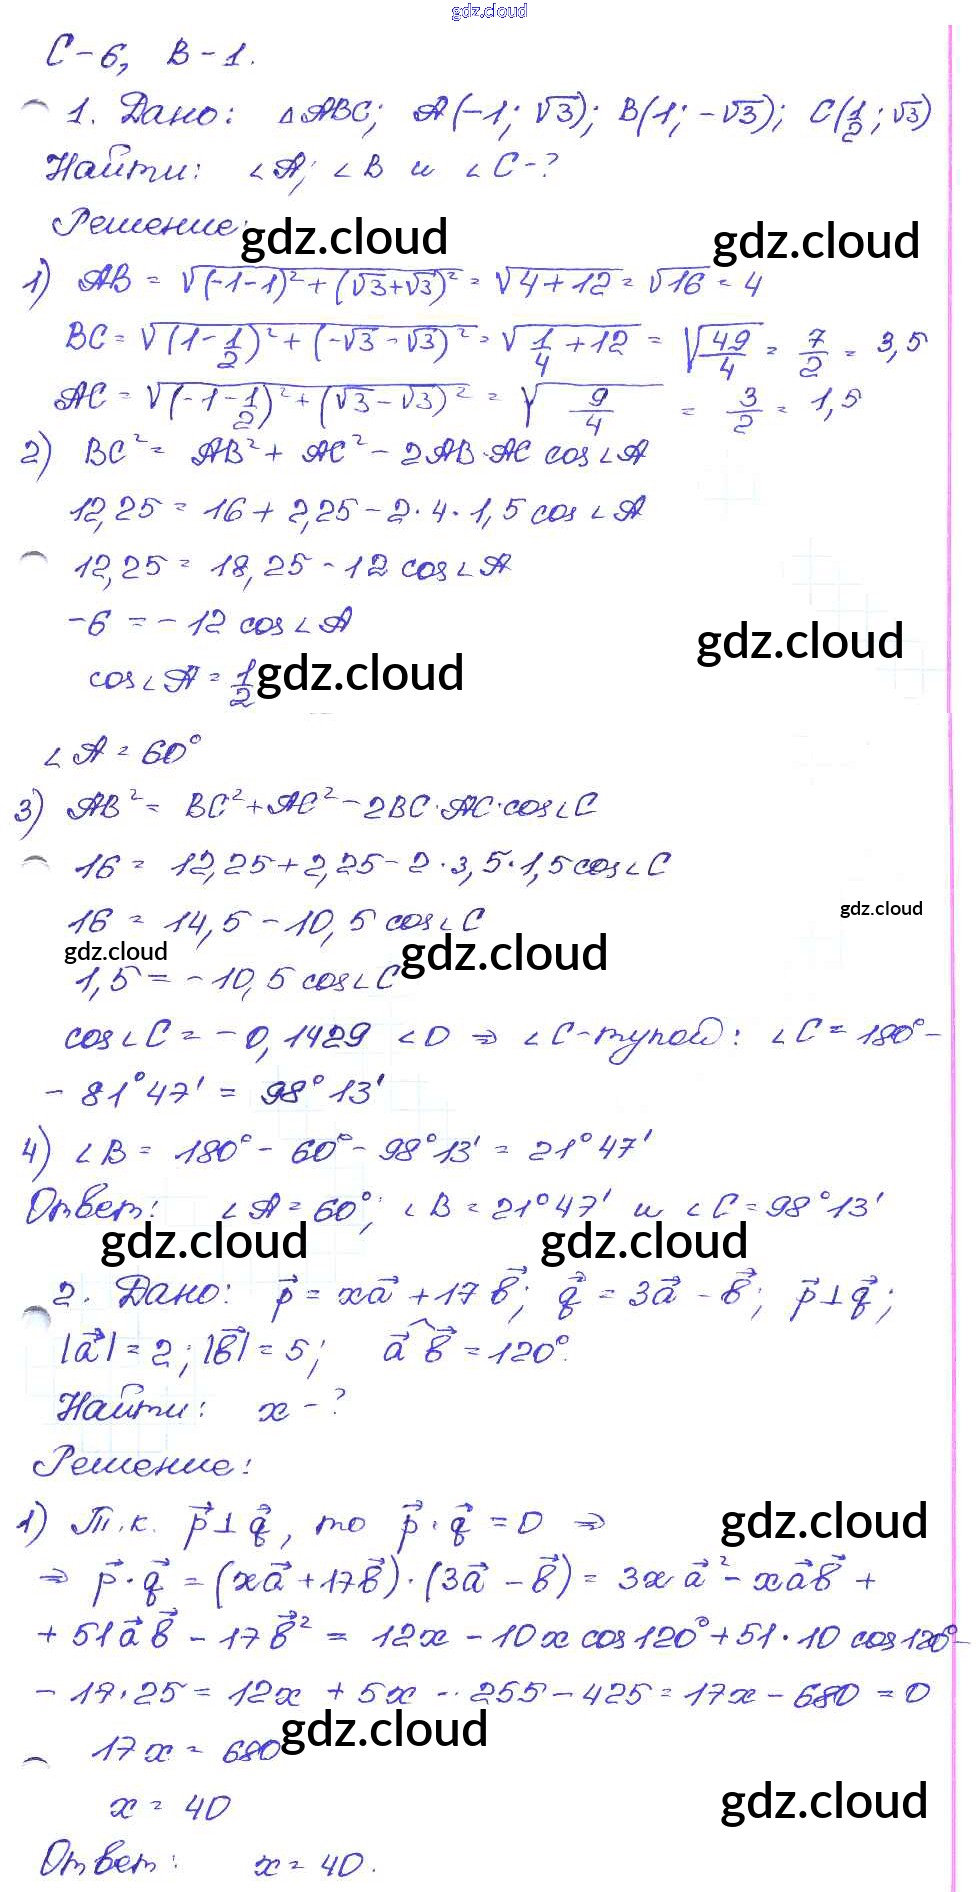 gdz.cloud
С-6, В-1.
1. Дано: △ABC; A(-1; √3); B(1; -√3); C(1/2; √3)
Найти: ∠A; ∠B и ∠C-?
Решение:
gdz.cloud gdz.cloud
1) AB = √(-1-1)² + (√3+√3)² = √4+12 = √16 = 4
BC = √(1-1/2)² + (-√3-√3)² = √1/4+12 = √49/4 = 7/2 = 3,5
AC = √(-1-1/2)² + (√3-√3)² = √9/4 = 3/2 = 1,5
2) BC² = AB² + AC² - 2AB·AC cos∠A
12,25 = 16 + 2,25 - 2·4·1,5 cos∠A
12,25 = 18,25 - 12 cos∠A
-6 = -12 cos∠A
gdz.cloud
cos∠A = 1/2
gdz.cloud
∠A = 60°
3) AB² = BC² + AC² - 2BC·AC·cos∠C
16 = 12,25 + 2,25 - 2·3,5·1,5 cos∠C
16 = 14,5 - 10,5 cos∠C
gdz.cloud
gdz.cloud gdz.cloud
1,5 = -10,5 cos∠C
cos∠C = -0,1429 < 0 ⇒ ∠C-тупой: ∠C = 180° -
- 81°47' = 98°13'
4) ∠B = 180° - 60° - 98°13' = 21°47'
Ответ: ∠A = 60°; ∠B = 21°47' и ∠C = 98°13'
gdz.cloud gdz.cloud
2. Дано: p⃗ = xa⃗ + 17b⃗; q⃗ = 3a⃗ - b⃗; p⃗⊥q⃗;
|a⃗| = 2; |b⃗| = 5; a⃗ b⃗ = 120°.
Найти: x-?
Решение:
1) Т.к. p⃗⊥q⃗, то p⃗·q⃗ = 0 ⇒
gdz.cloud
⇒ p⃗·q⃗ = (xa⃗ + 17b⃗)·(3a⃗ - b⃗) = 3xa⃗² - xa⃗b⃗ +
+ 51a⃗b⃗ - 17b⃗² = 12x - 10x cos120° + 51·10 cos120° -
- 17·25 = 12x + 5x - 255 - 425 = 17x - 680 = 0
gdz.cloud
17x = 680
x = 40
gdz.cloud
Ответ: x = 40.